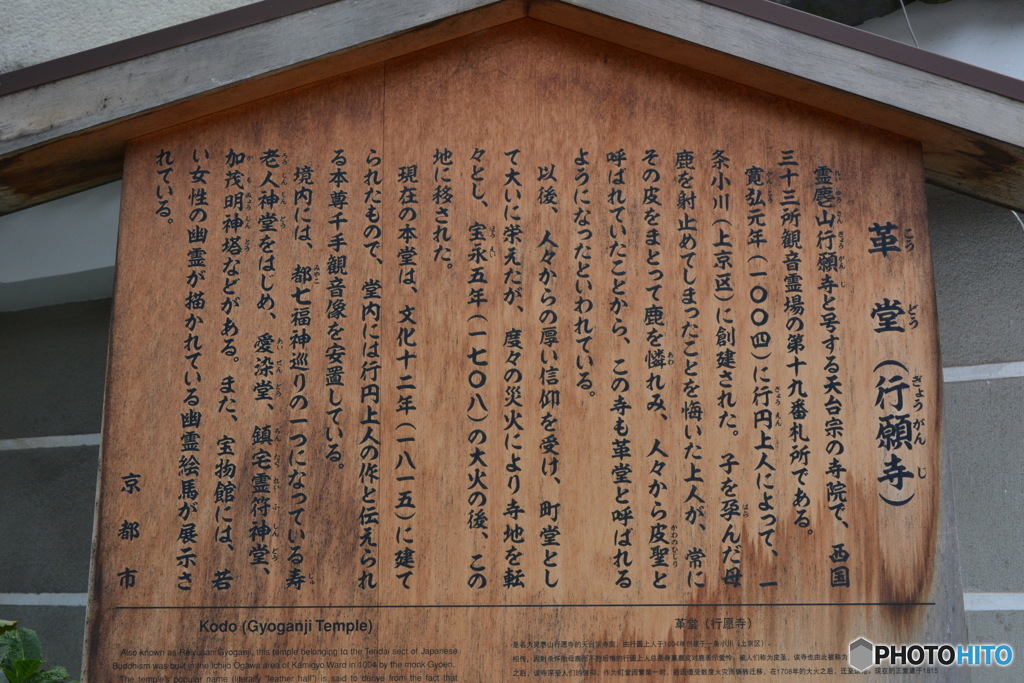 革堂（行願寺）
霊麀山行願寺と号する天台宗の寺院で、西国
三十三所観音霊場の第十九番札所である。
寛弘元年（一〇〇四）に行円上人によって、一
条小川（上京区）に創建された。子を孕んだ母
鹿を射止めてしまったことを悔いた上人が、常に
その皮をまとって鹿を憐れみ、人々から皮聖と
呼ばれていたことから、この寺も革堂と呼ばれる
ようになったといわれている。
以後、人々からの厚い信仰を受け、町堂とし
て大いに栄えたが、度々の災火により寺地を転
々とし、宝永五年（一七〇八）の大火の後、この
地に移された。
現在の本堂は、文化十二年（一八一五）に建て
られたもので、堂内には行円上人の作と伝えられ
る本尊千手観音像を安置している。
境内には、都七福神巡りの一つになっている寿
老人神堂をはじめ、愛染堂、鎮宅霊符神堂、
加茂明神塔などがある。また、宝物館には、若
い女性の幽霊が描かれている幽霊絵馬が展示さ
れている。
京都市
Kodo (Gyoganji Temple)
Also known as Reiyusan Gyoganji, this temple belonging to the Tendai sect of Japanese
Buddhism was built in the Ichijo Ogawa area of Kamigyo Ward in 1004 by the monk Gyoen.
The temple's popular name (literally "leather hall") is said to derive from the fact that
革堂（行愿寺）
PHOTOHITO